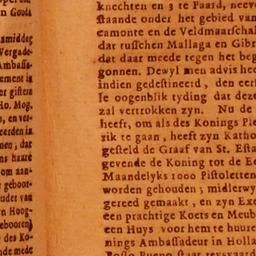 en Gods
amiddag
Vergade-
Ambassa-
ement in
er gistere
Ho. Mog.
s, en ver-
eerden in
men, dat
ns haare
om aan-
geboot-
uder van
n Hoog-
ebooren)
des Ko-
nde mede
knechten en 3 te Paard, neev
staande onder het gebied van
eamonte en de Veldmaarschal
dat tusschen Mallaga en Gibr
dat daar meede tegen het beg
gonnen. Dewyl men advis hee
indien gedestineerd, den eers
Ie oogenblik tyding dat deze
zal vertrokken zyn. Nu de
heeft, om als des Konings Ple
rik te gaan, heeft zyn Katho
gesteld de Graaf van St. Esta
gevende de Koning tot de Ee
Maandelyks 1000 Pistoletten
worden gehouden; midlerwyl
gereed gemaakt, en zyn Exc
een prachtige Koets en Meub
een Huys voor hem te huure
nings Ambassadeur in Holla